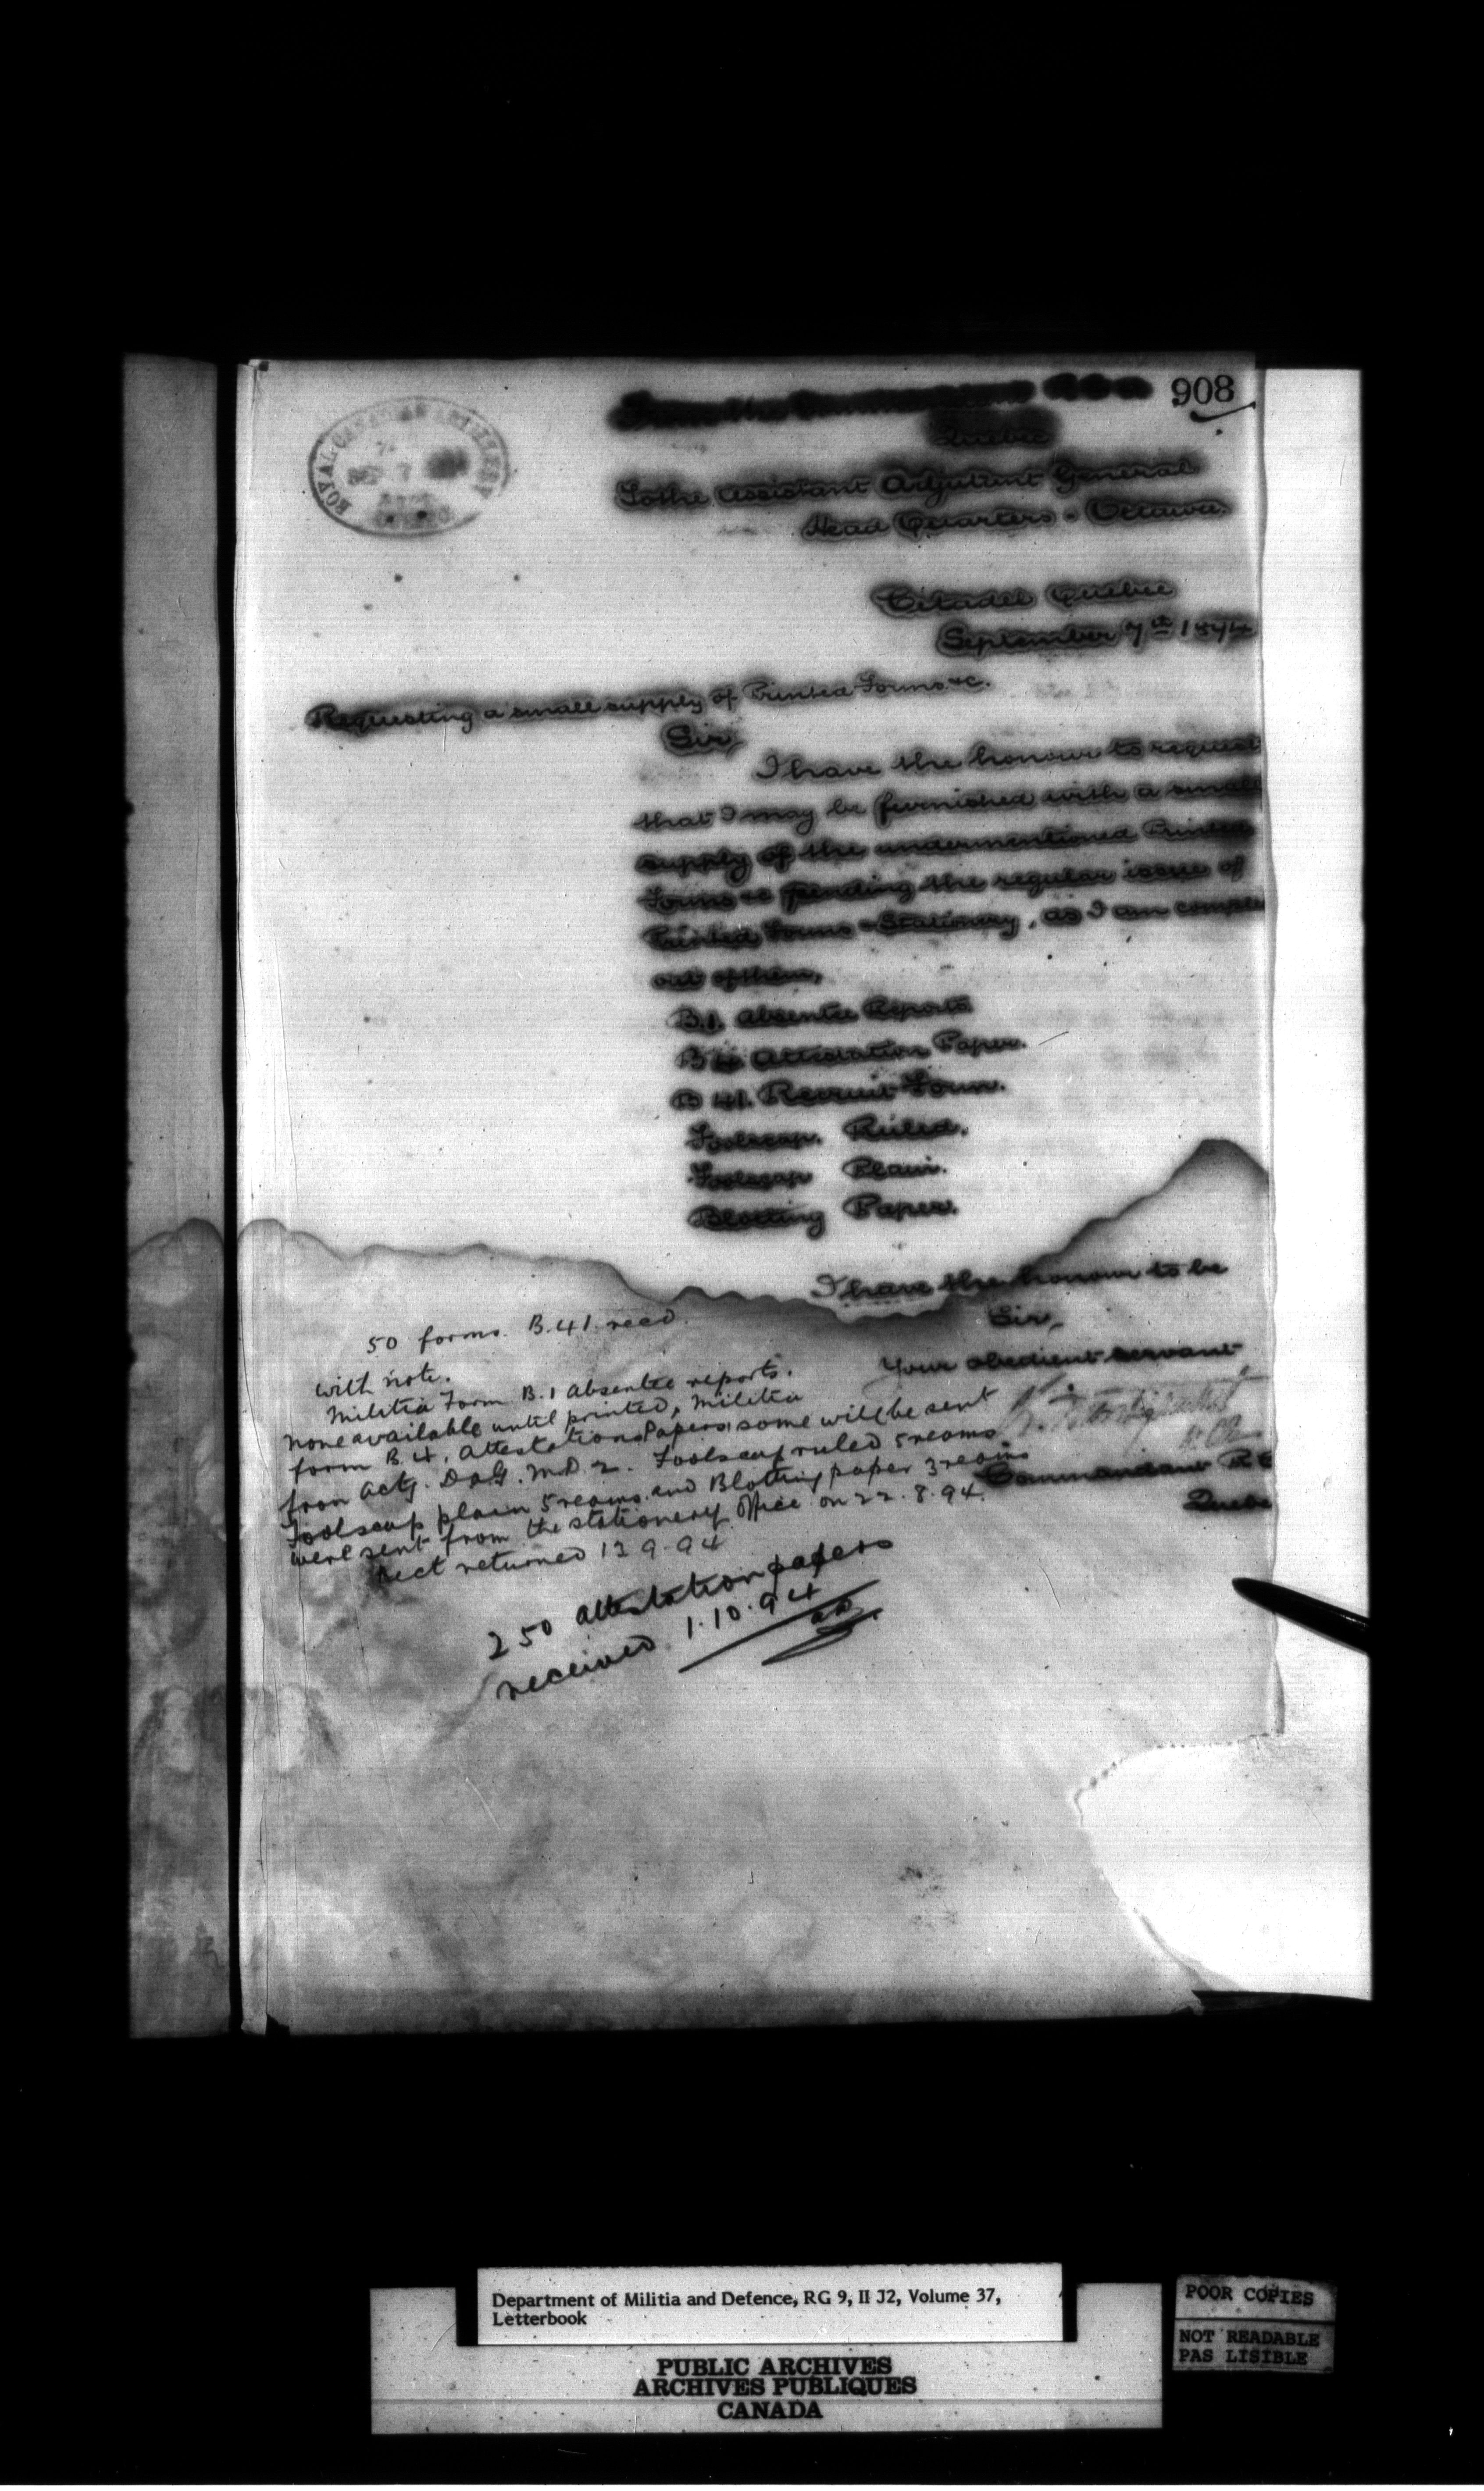 908
ROYAL CANADIAN ARTILLERY
SEP 7
QUEBEC
From the Commandant
Quebec
To the Assistant Adjutant General
Head Quarters - Ottawa.
Citadel Quebec
September 7th 1894
Requesting a small supply of Printed Forms &c.
Sir,
I have the honour to request
that I may be furnished with a small
supply of the undermentioned Printed
Forms &c pending the regular issue of
Printed Forms & Stationery, as I am comple
out of them,
B.1. Absentee Reports
B 4 Attestation Paper.
B 41. Recruit Form.
Foolscap. Ruled.
Foolscap Plain.
Blotting Paper.
I have the honour to be
Sir,
Your obedient servant
Commandant R C
Quebe
50 forms. B.41. recd.
with note.
Militia Form B.1 Absentee reports.
none available until printed, Militia
form B.4. Attestation Papers some will be sent
from actg. D.A.G. M.D. 2. Foolscap ruled 5 reams
Foolscap plain 5 reams and Blotting paper 3 reams
were sent from the stationery Office on 22.8.94.
rect returned 12 9.94
250 attestation papers
received 1.10.94
Department of Militia and Defence, RG 9, II J2, Volume 37,
Letterbook
PUBLIC ARCHIVES
ARCHIVES PUBLIQUES
CANADA
POOR COPIES
NOT READABLE
PAS LISIBLE